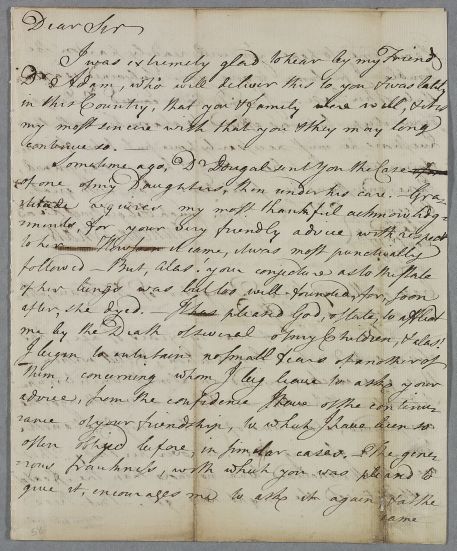 Dear Sir
I was extremely glad to hear by my Friend
Dr Adam, who will deliver this to you & was lately
in this Country, that you & family were well, & it is
my most sincere wish that you & they may long
continue so. —
Sometime ago, Dr Dougal sent you the Case
of one of my Daughters, then under his care. Gra-
titude requires my most thankful acknowledg-
ments for your very friendly advice with respect
to her it came, it was most punctually
followed. But, alas! your conjecture as to the state
of her lungs was but too well founded, for, soon
after, she dyed. — pleased God, of late, to afflict
me by the Death of several of my Children, & alas!
I begin to entertain no small fears of another of
them, concerning whom I beg leave to ask your
advice, from the confidence I have of the continu-
rance of your friendship, to which I have been so
often obliged before, in similar cases. & the gene-
rous frankness, with which you was pleased to
give it, encourages me to ask it again at the
same